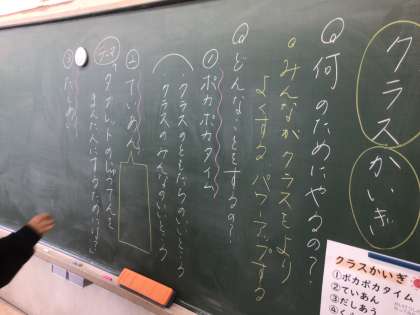 クラスかいぎ
Q何のためにやるの?
みんながクラスをより
よくする パワーアップする
Qどんなことをするの?
①ポカポカタイム
・クラスのともだちのいいところ
・クラスのみんなのいいところ
②ていあん
タブレットの
③だしあい
クラスかいぎ
①ポカポカタイム
②ていあん
③だしあう
④